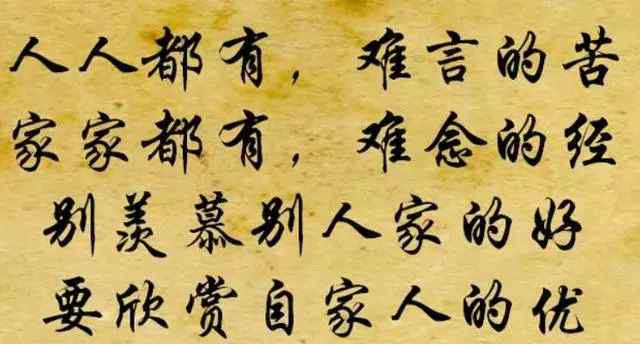 人人都有，难言的苦
家家都有，难念的经
别羡慕别人家的好
要欣赏自家人的优